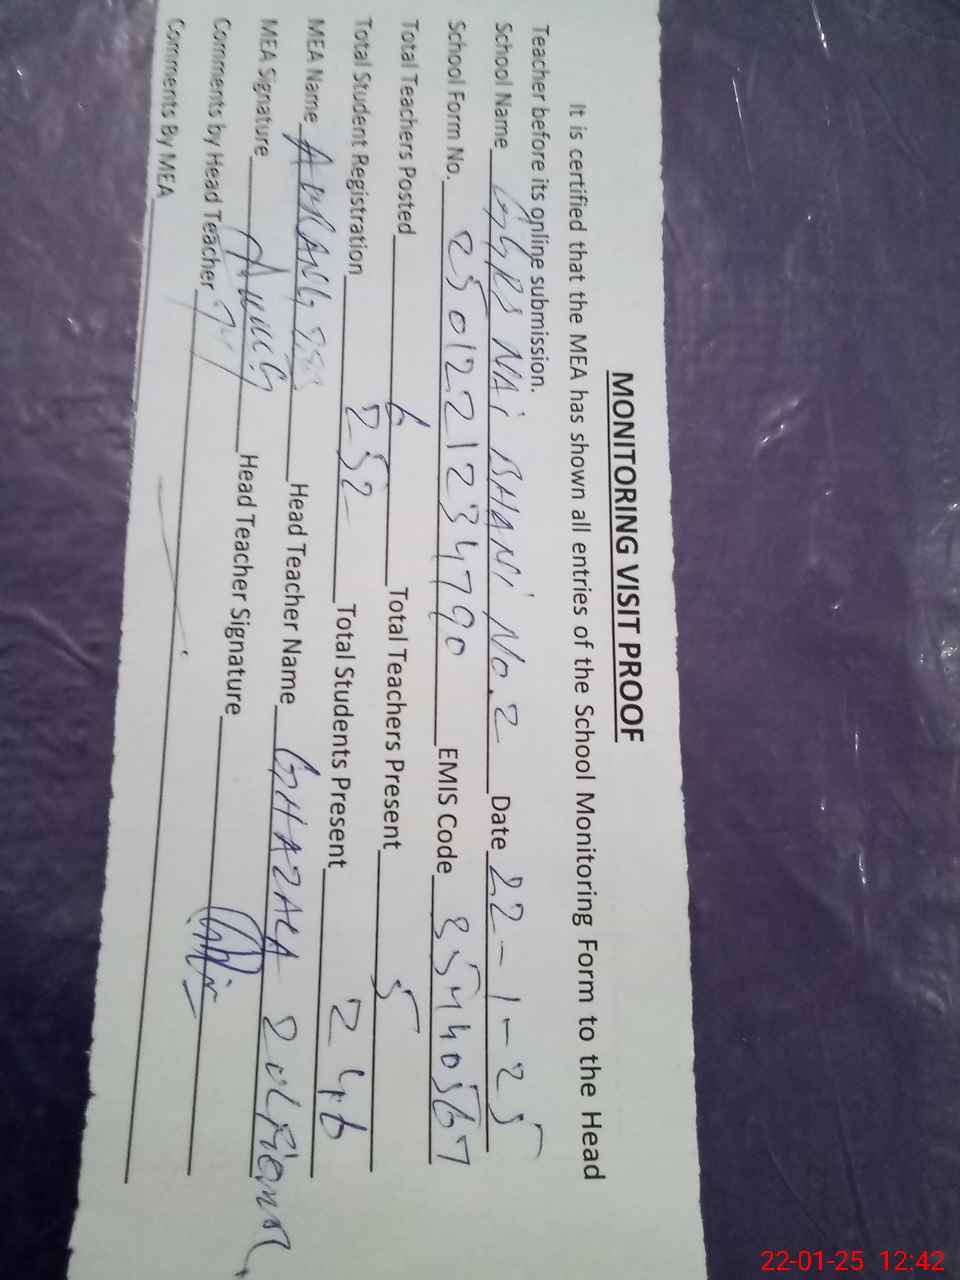 MONITORING VISIT PROOF
It is certified that the MEA has shown all entries of the School Monitoring Form to the Head
Teacher before its online submission.
School Name GGPS NAi BHANi No.2 Date 22-1-25
School Form No. 2501221234790 EMIS Code
Total Teachers Posted 6 Total Teachers Present 5
Total Student Registration 252 Total Students Present 246
MEA Name Head Teacher Name GHAZALA
MEA Signature Head Teacher Signature
Comments by Head Teacher
Comments By MEA
22-01-25 12:42